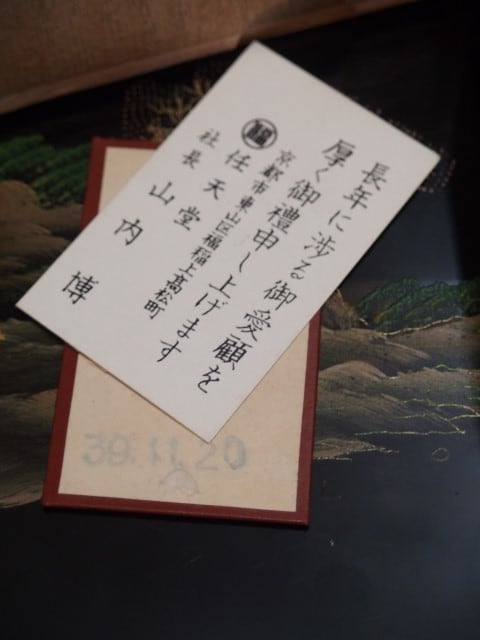 長年に渉る御愛顧を
厚く御禮申し上げます
京都市東山区福稲上高松町
福
任天堂
社長 山内 博
39.11.20